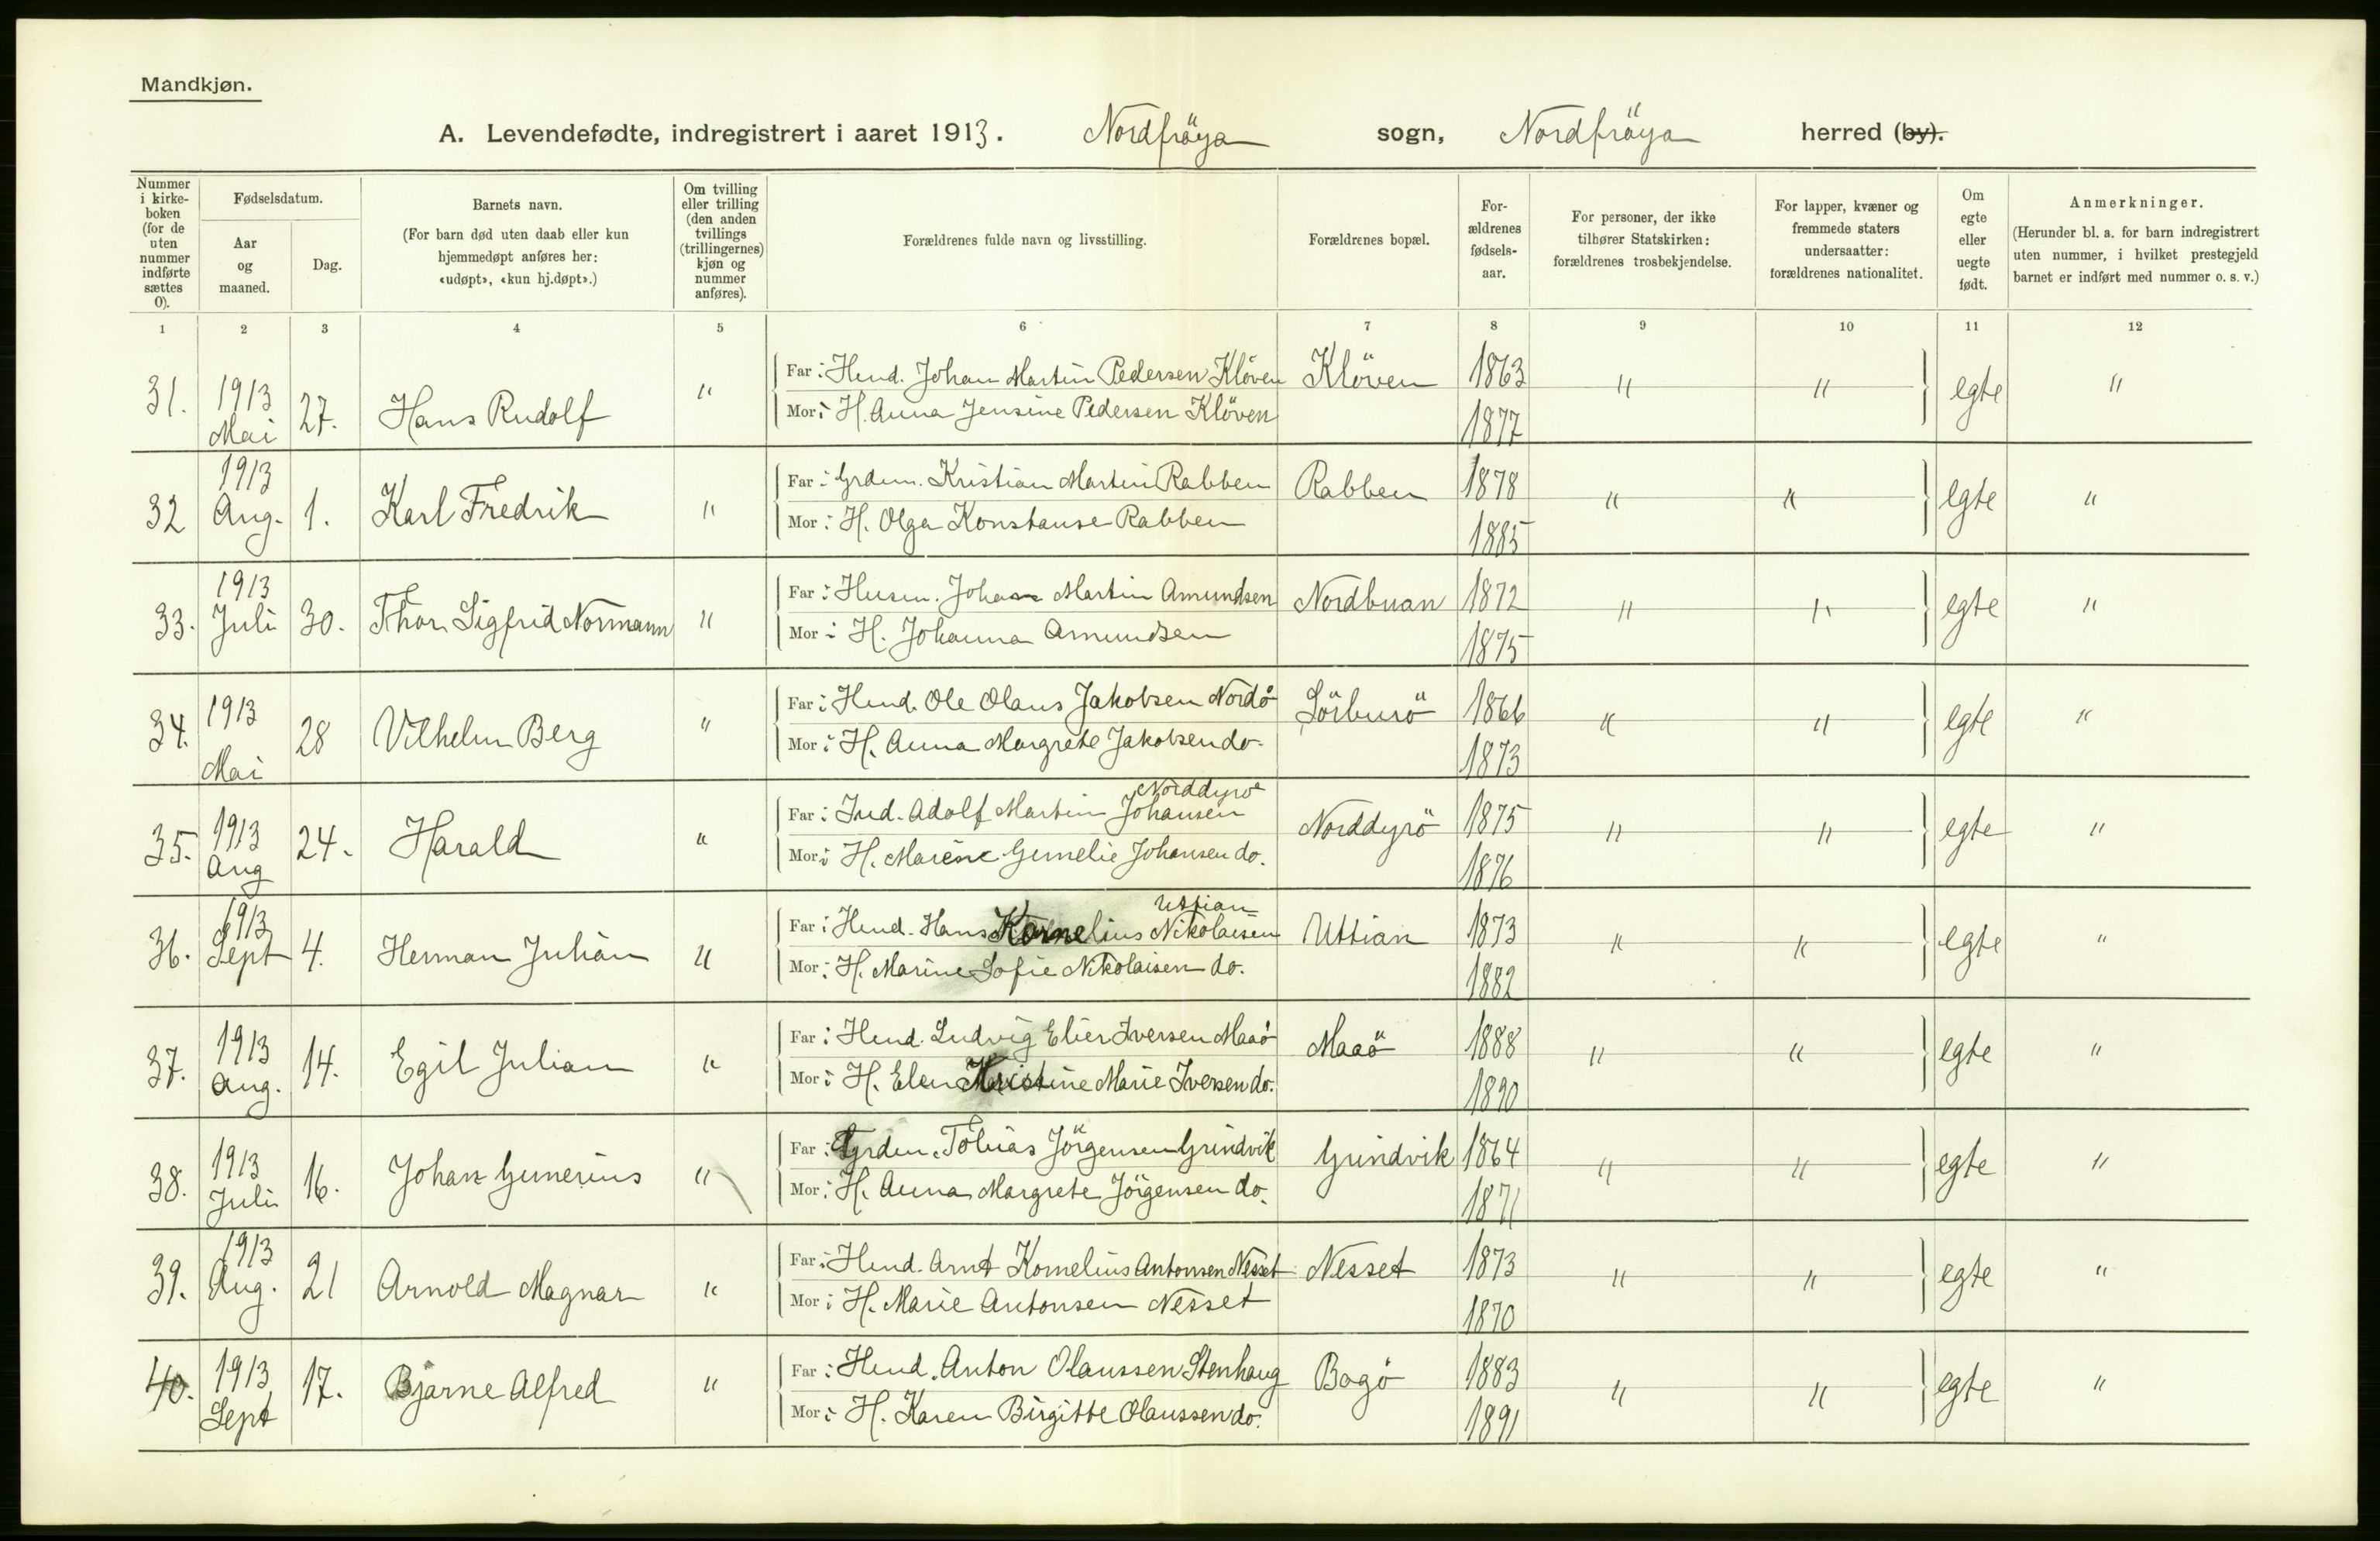 Mandkjøn.
A. Levendefødte, indregistrert i aaret 1913. Nordfröya sogn, Nordfröya herred (by).
Nummer i kirke-boken (for de uten nummer indførte sættes 0).
Fødselsdatum.
Aar og maaned.
Dag.
Barnets navn.
(For barn død uten daab eller kun hjemmedøpt anføres her: «udøpt», «kun hj.døpt».)
Om tvilling eller trilling (den anden tvillings (trillingernes) kjøn og nummer anføres).
Forældrenes fulde navn og livsstilling.
Forældrenes bopæl.
For-ældrenes fødsels-aar.
For personer, der ikke tilhører Statskirken: forældrenes trosbekjendelse.
For lapper, kvæner og fremmede staters undersaatter: forældrenes nationalitet.
Om egte eller uegte født.
Anmerkninger.
(Herunder bl. a. for barn indregistrert uten nummer, i hvilket prestegjeld barnet er indført med nummer o. s. v.)
1 2 3 4 5 6 7 8 9 10 11 12
31. 1913 Mai 27. Hans Rudolf " Far: Hmd. Johan Martin Pedersen Klöven Klöven 1863 " " egte "
Mor: H. Anna Jensine Pedersen Klöven 1877
32 1913 Aug. 1. Karl Fredrik " Far: Grdm. Kristian Martin Rabben Rabben 1878 " " egte "
Mor: H. Olga Konstanse Rabben 1885
33. 1913 Juli 30. Thor Sigfrid Normann " Far: Husm. Johan Martin Amundsen Nordbuan 1872 " " egte "
Mor: H. Johanna Amundsen 1875
34. 1913 Mai 28 Vilhelm Berg " Far: Hmd. Ole Olaus Jakobsen Nordö Sörburö 1866 " " egte "
Mor: H. Anna Margrete Jakobsen do. 1873
35. 1913 Aug 24. Harald " Far: Ind. Adolf Martin Johansen Norddyrö Norddyrö 1875 " " egte "
Mor: H. Marine Gunelie Johansen do. 1876
36. 1913 Sept 4. Herman Julian " Far: Hmd. Hans Kornelius Nikolaisen Uttian Uttian 1873 " " egte "
Mor: H. Marine Sofie Nikolaisen do. 1882
37. 1913 Aug. 14. Egil Julian " Far: Hmd. Ludvig Elier Iversen Maaö Maaö 1888 " " egte "
Mor: H. Elen Kristine Marie Iversen do. 1890
38. 1913 Juli 16. Johan Gunerius " Far: Grdm. Tobias Jörgensen Grindvik Grindvik 1864 " " egte "
Mor: H. Anna Margrete Jörgensen do. 1871
39. 1913 Aug. 21 Arnold Magnar " Far: Hmd. Arnt Kornelius Antonsen Nesset Nesset 1873 " " egte "
Mor: H. Marie Antonsen Nesset 1870
40. 1913 Sept 17. Bjarne Alfred " Far: Hmd. Anton Olaussen Stenhaug Bogö 1883 " " egte "
Mor: H. Karen Birgitte Olaussen do. 1891